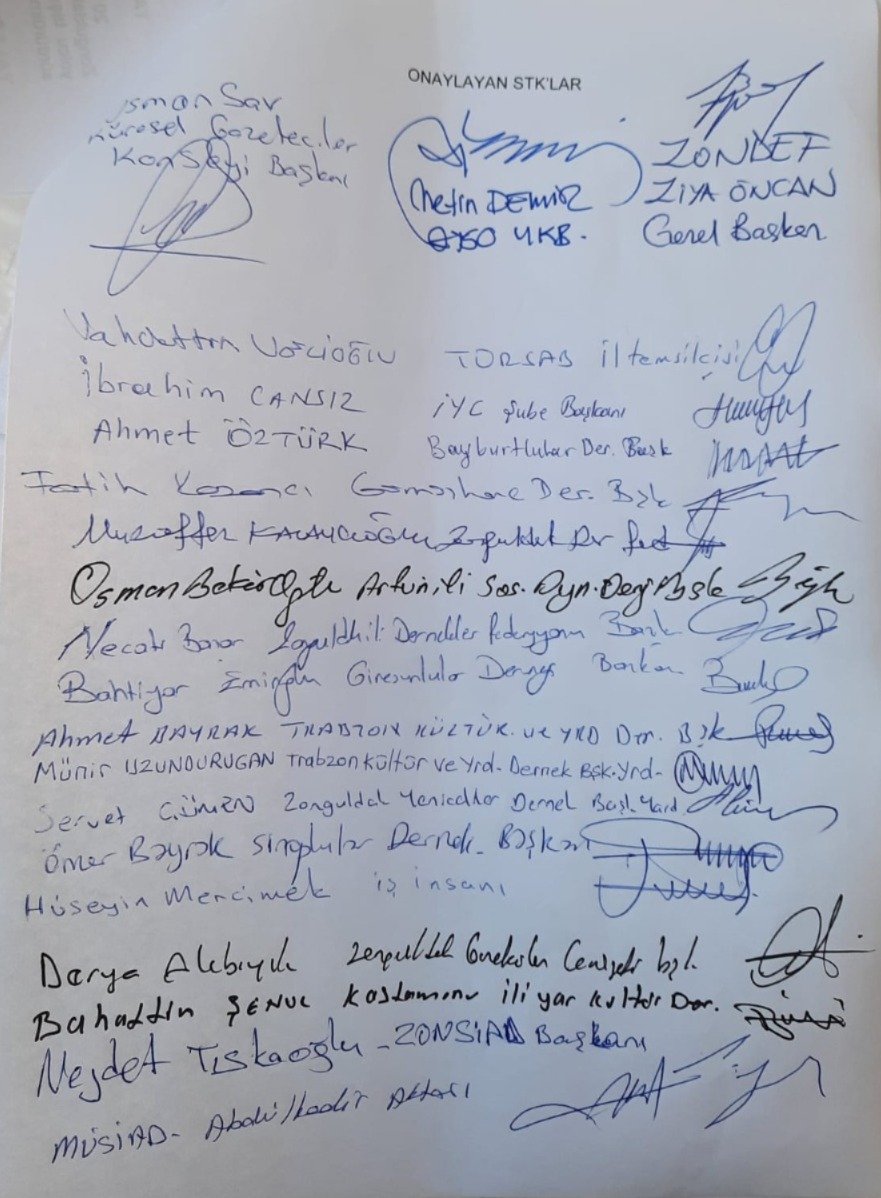 ONAYLAYAN STK'LAR
Osman Sav
Küresel Gazeteciler
Konseyi Başkanı
Metin DEMİR
YKB.
ZONDEF
ZİYA ÖNCAN
Genel Başkan
Vahdettin TÜRSAB İl temsilcisi
İbrahim CANSIZ İYC Şube Başkanı
Ahmet ÖZTÜRK Bayburtlular Der. Başk
Fatih Kazancı Gümüşhane Der. Bşk
Muzaffer KALAYCIOĞLU Zonguldak
Osman Bekiroğlu Artvin ili Sos. Day. Bşk
Necati Zonguldak ili Dernekler Federasyonu Başk
Bahtiyar Giresunlular Derneği Başkanı
Ahmet BAYRAK TRABZON KÜLTÜR. VE YRD Der. Bşk
Münir UZUNDURUGAN Trabzon Kültür ve Yrd. Dernek Bşk. Yrd.
Servet Zonguldak Dernek Başk. Yard
Ömer Bayrak Sinoplular Dernek. Başkanı
Hüseyin Mercimek iş insanı
Derya Akbıyık Zonguldak bşk.
Bahattin ŞENUL Kastamonu ili Der.
Nejdet Tıskaoğlu - ZONSİAD Başkanı
MÜSİAD - Abdülkadir